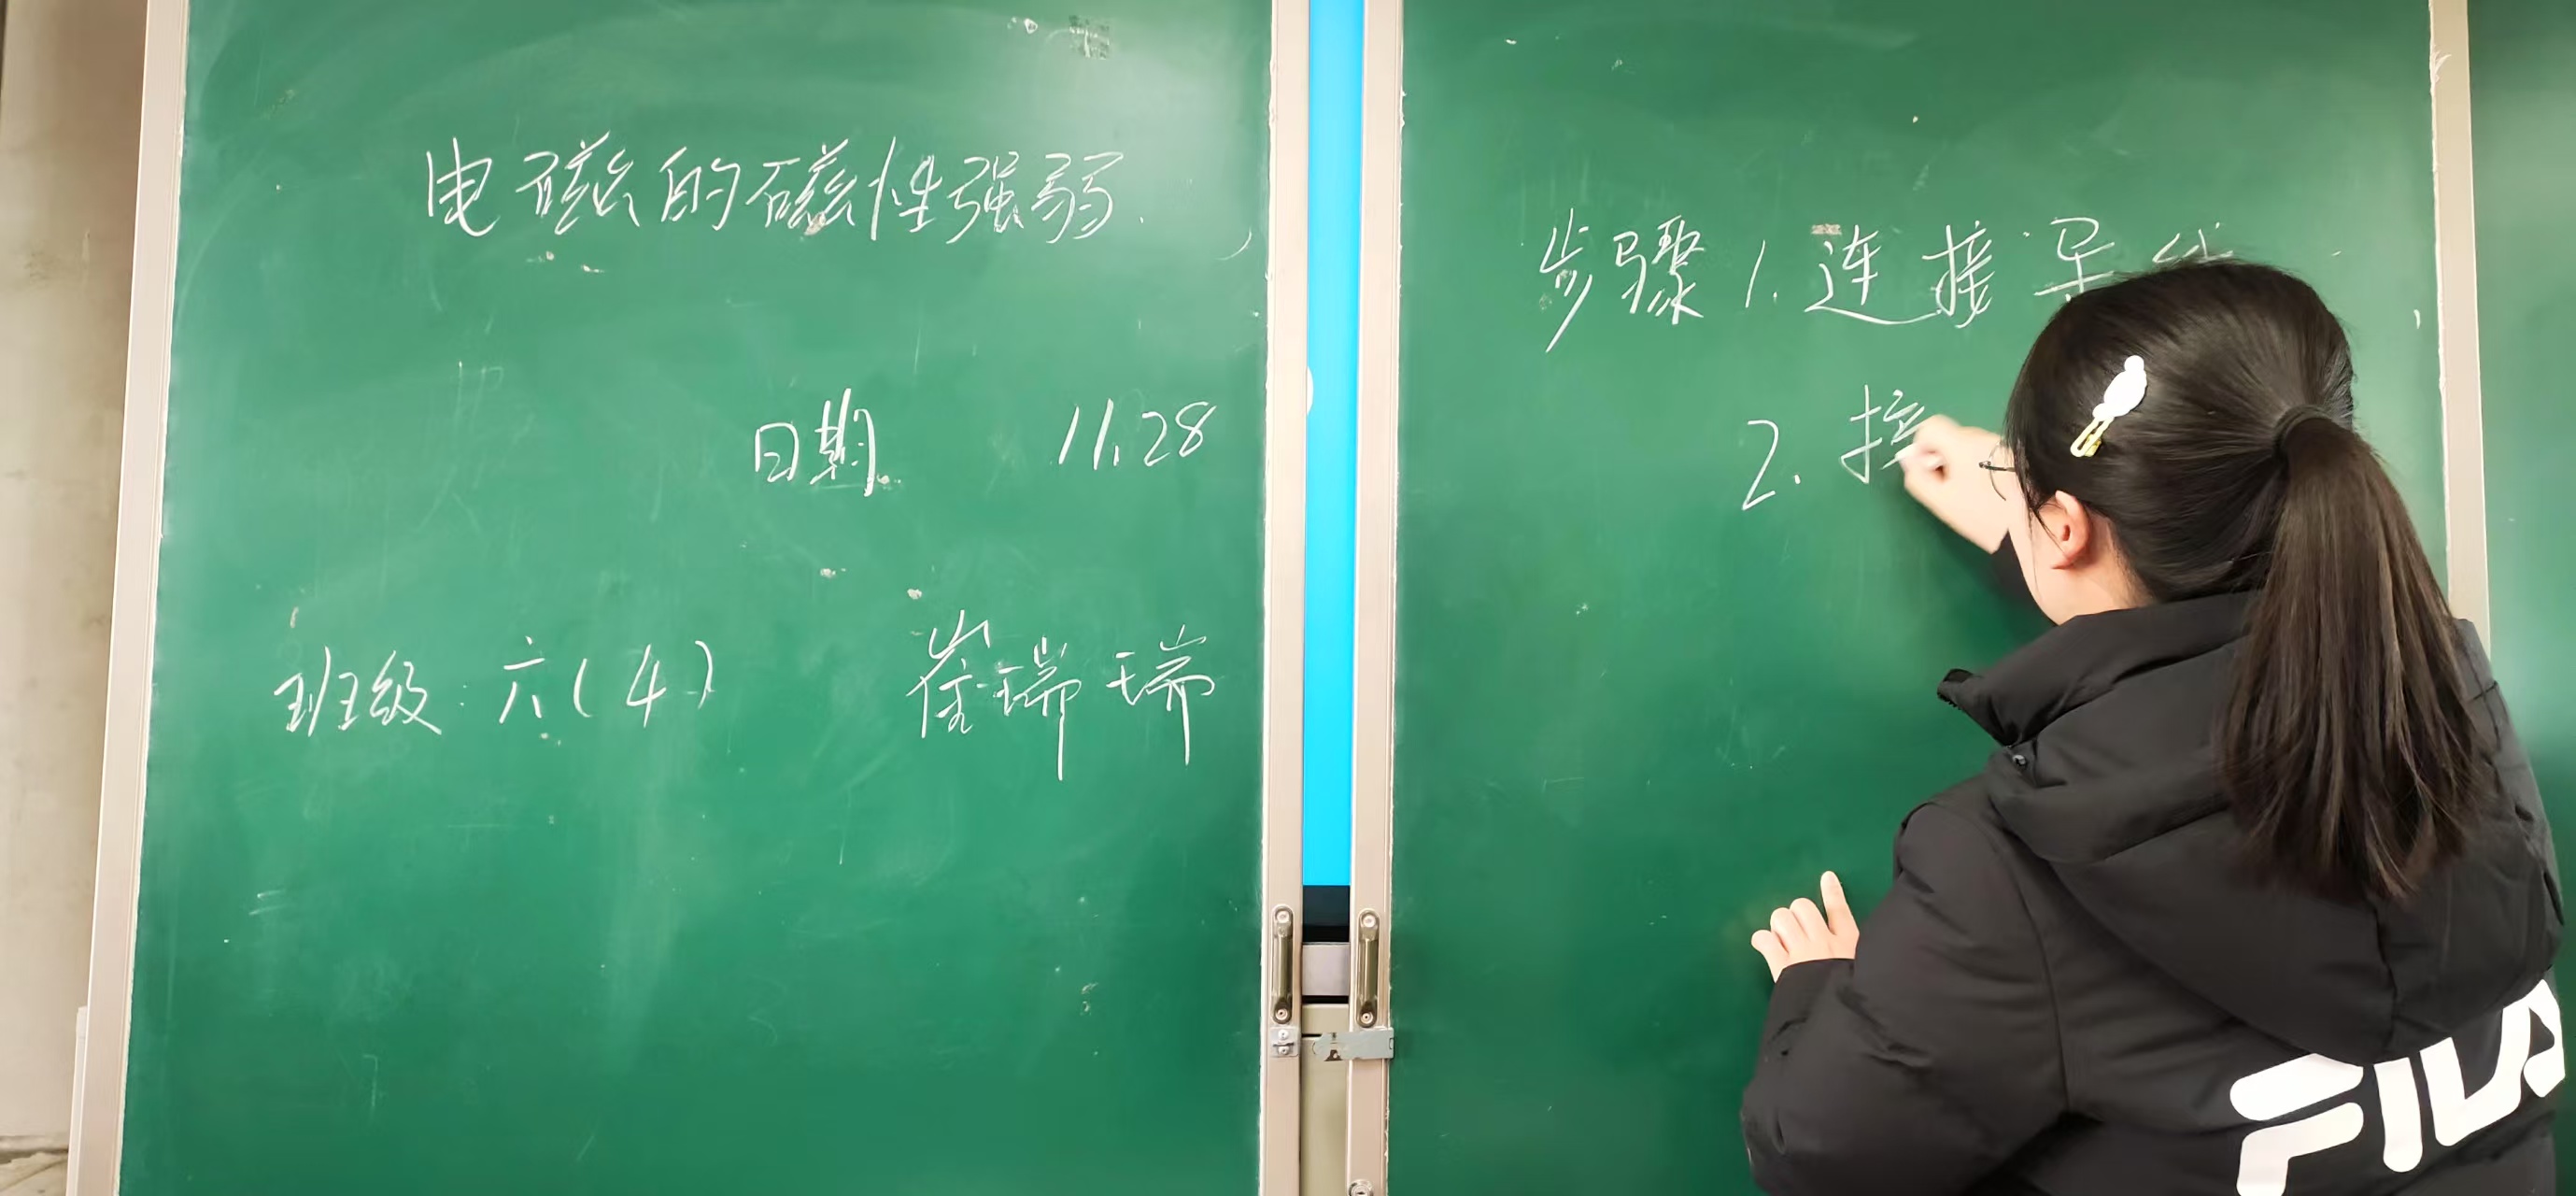 电磁的磁性强弱.
日期 11.28
班级:六(4) 崔瑞瑞
步骤 1.连接导线
2.接
FILA